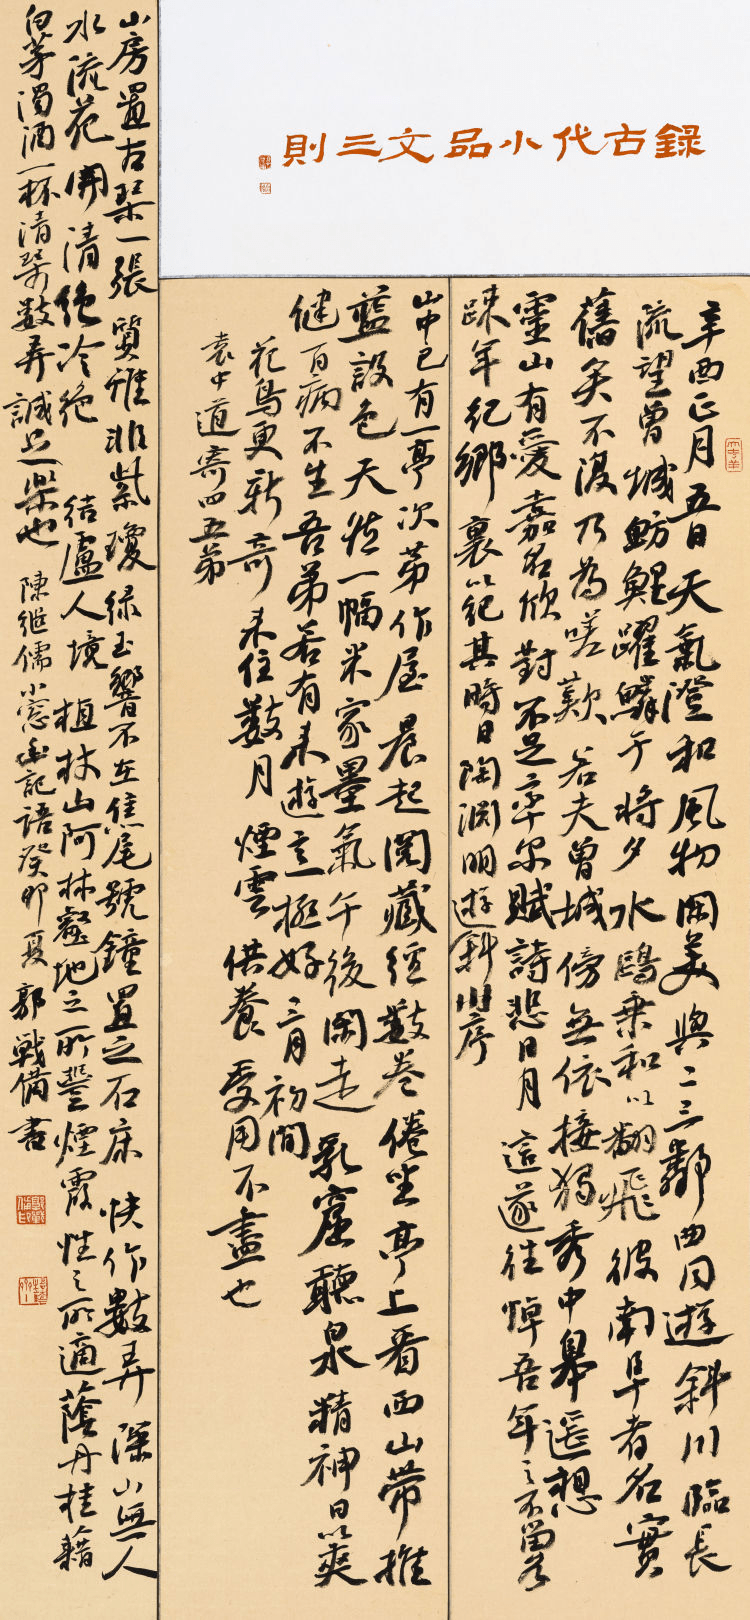 錄古代小品文三則
辛酉正月五日天氣澄和風物閑美與二三鄰曲同遊斜川臨長
流望曾城魴鯉躍鱗于將夕水鷗乘和以翻飛彼南阜者名實
舊矣不復乃為嗟歎若夫曾城傍無依接獨秀中皋遥想
靈山有愛嘉名欣對不足率尔賦詩悲日月這遂往悼吾年之不留各
疎年紀鄉裏以紀其時日陶淵明遊斜川序
山中已有一亭次苐作屋晨起閱藏經數卷倦坐亭上看西山帶推
藍設色天然一幅米家墨氣午後閑走乳窟聽泉精神日以爽
健百病不生吾弟若有来遊意極好三月初間
花鳥更新奇来住數月煙雲供養受用不盡也
袁中道寄四五弟
山房置古琴一張質雖非紫瓊绿玉響不在焦尾號鐘置之石床快作數弄深山無人
水流花開清绝冷绝 結廬人境植杖山阿林壑地之所豐煙霞性之所適蔭丹桂藉
白茅濁酒一杯清琴數弄誠足樂也 陳繼儒小窓幽記語癸卯夏郭戰備書